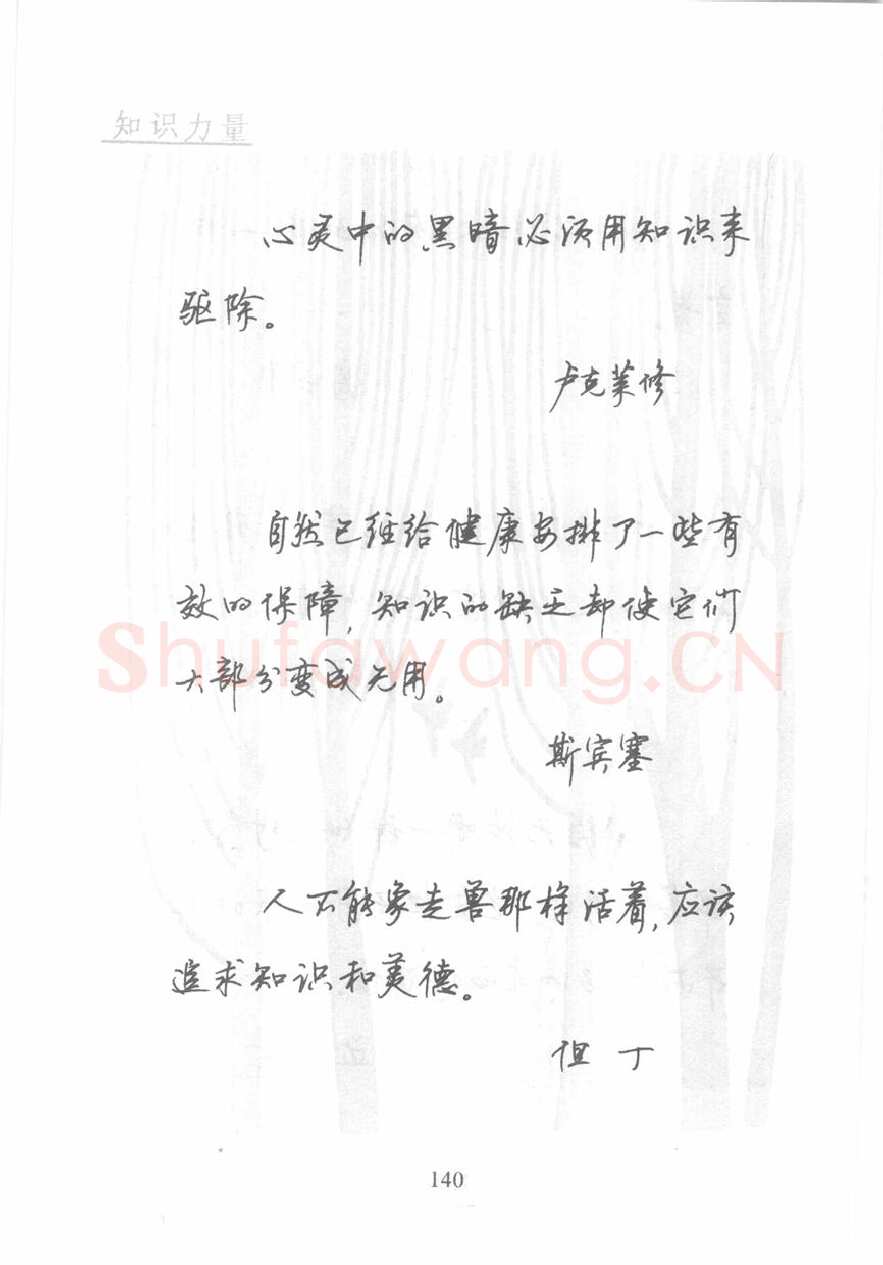 知识力量
心灵中的黑暗必须用知识来
驱除。
卢克莱修
自然已经给健康安排了一些有
效的保障,知识的缺乏却使它们
大部分变成无用。
Shufawang.CN
斯宾塞
人不能象走兽那样活着,应该
追求知识和美德。
但 丁
140